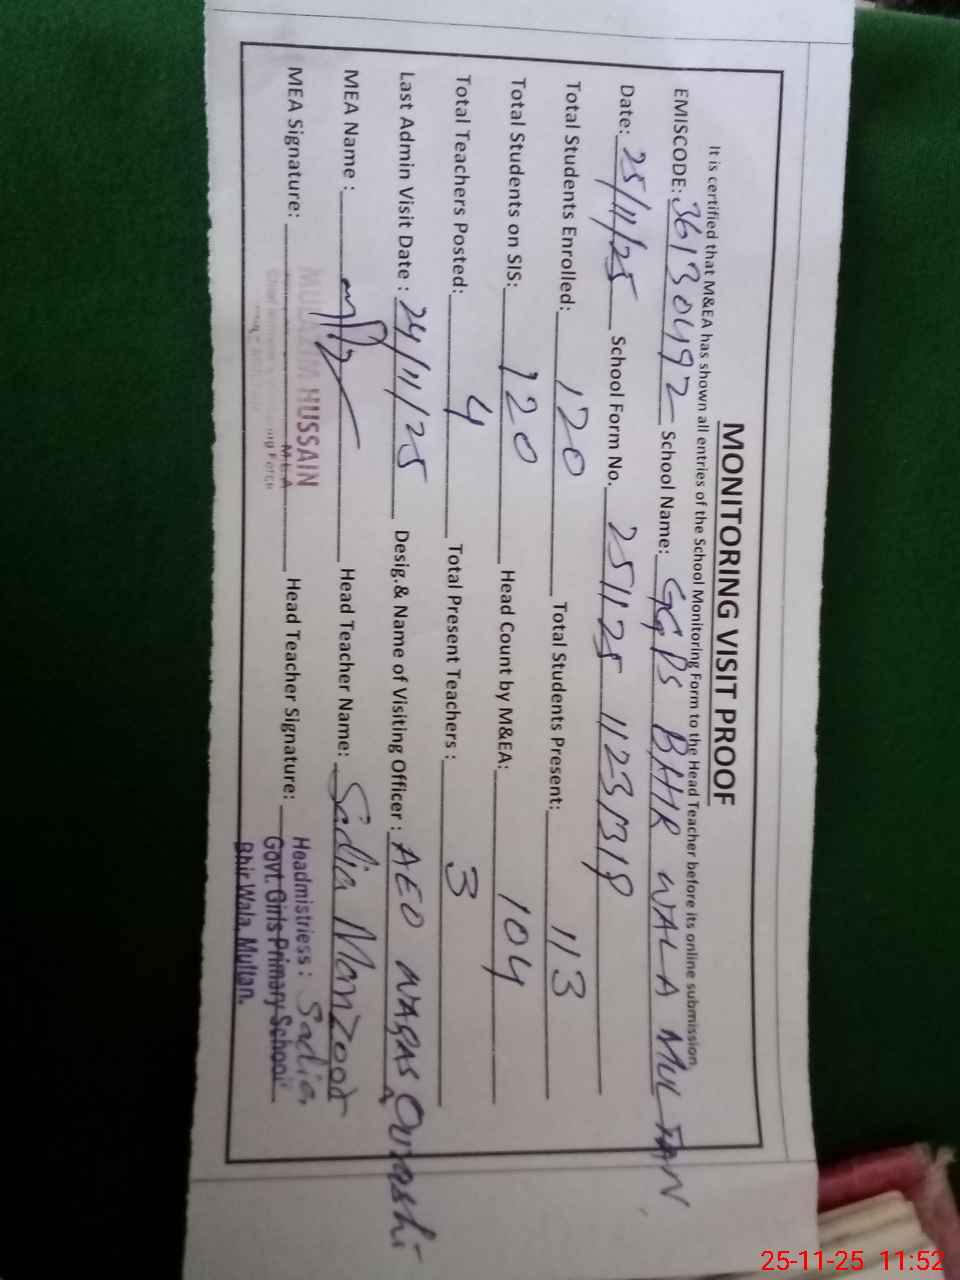 MONITORING VISIT PROOF
It is certified that M&EA has shown all entries of the School Monitoring Form to the Head Teacher before its online submission
EMISCODE: 36130492 School Name: GGPS BHIR WALA MULTAN
Date: 25/11/25 School Form No. 251125 1123
Total Students Enrolled: 120 Total Students Present: 113
Total Students on SIS: 120 Head Count by M&EA: 104
Total Teachers Posted: 4 Total Present Teachers : 3
Last Admin Visit Date : 24/11/25 Desig.& Name of Visiting Officer : AEO WAQAS Qureshi
MEA Name : Head Teacher Name: Sadia Manzoor
MEA Signature: HUSSAIN M.E.A Head Teacher Signature:
Headmistriess : Sadia
Govt. Girls Primary School
Bhir Wala, Multan.
25-11-25 11:52